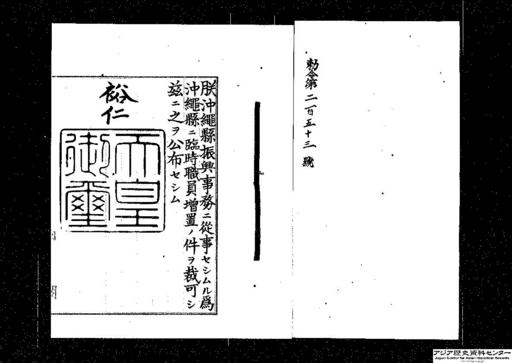 勅令第二百五十三號
朕沖繩縣振興事務ニ從事セシムル爲
沖繩縣ニ臨時職員增置ノ件ヲ裁可シ
茲ニ之ヲ公布セシム
裕仁
天皇
御璽
アジア歴史資料センター
Japan Center for Asian Historical Records